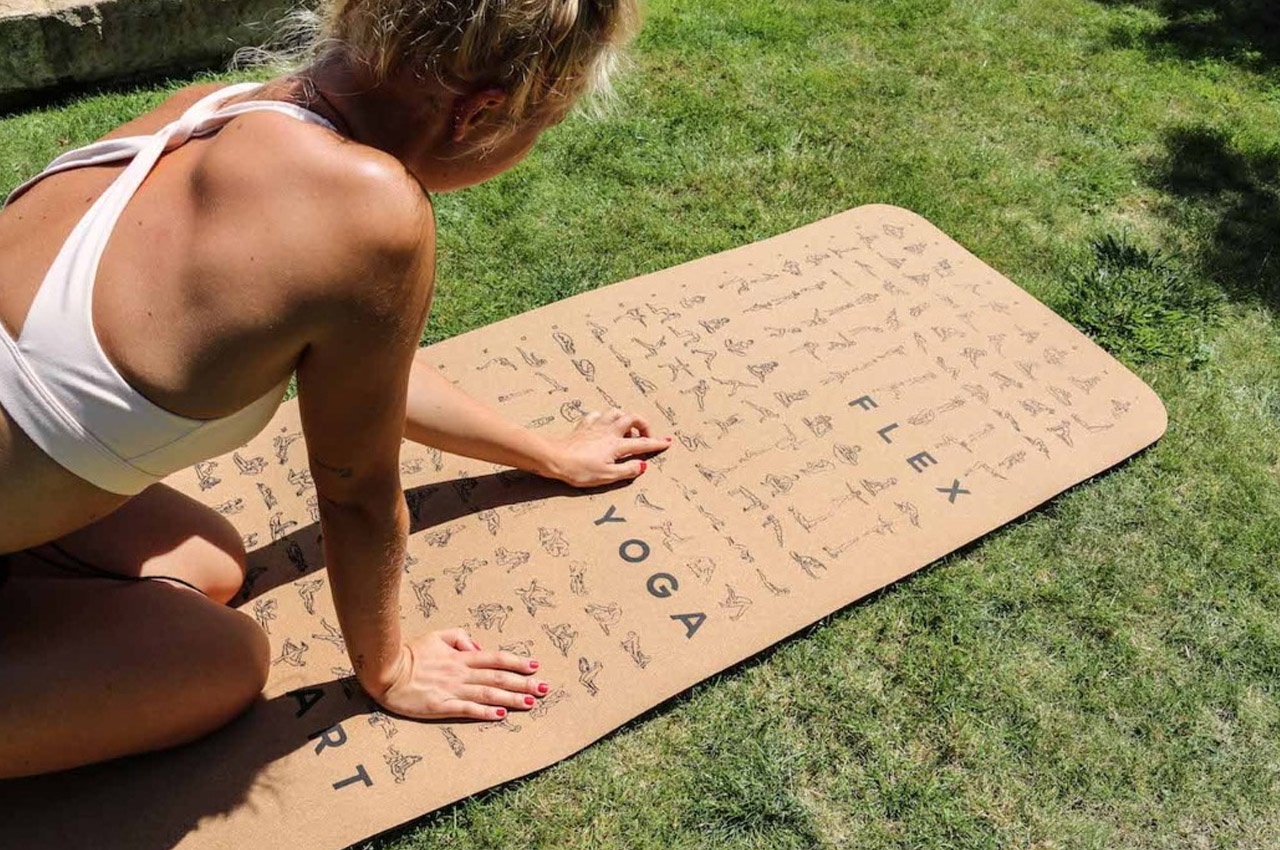 FLEX
YOGA
ART